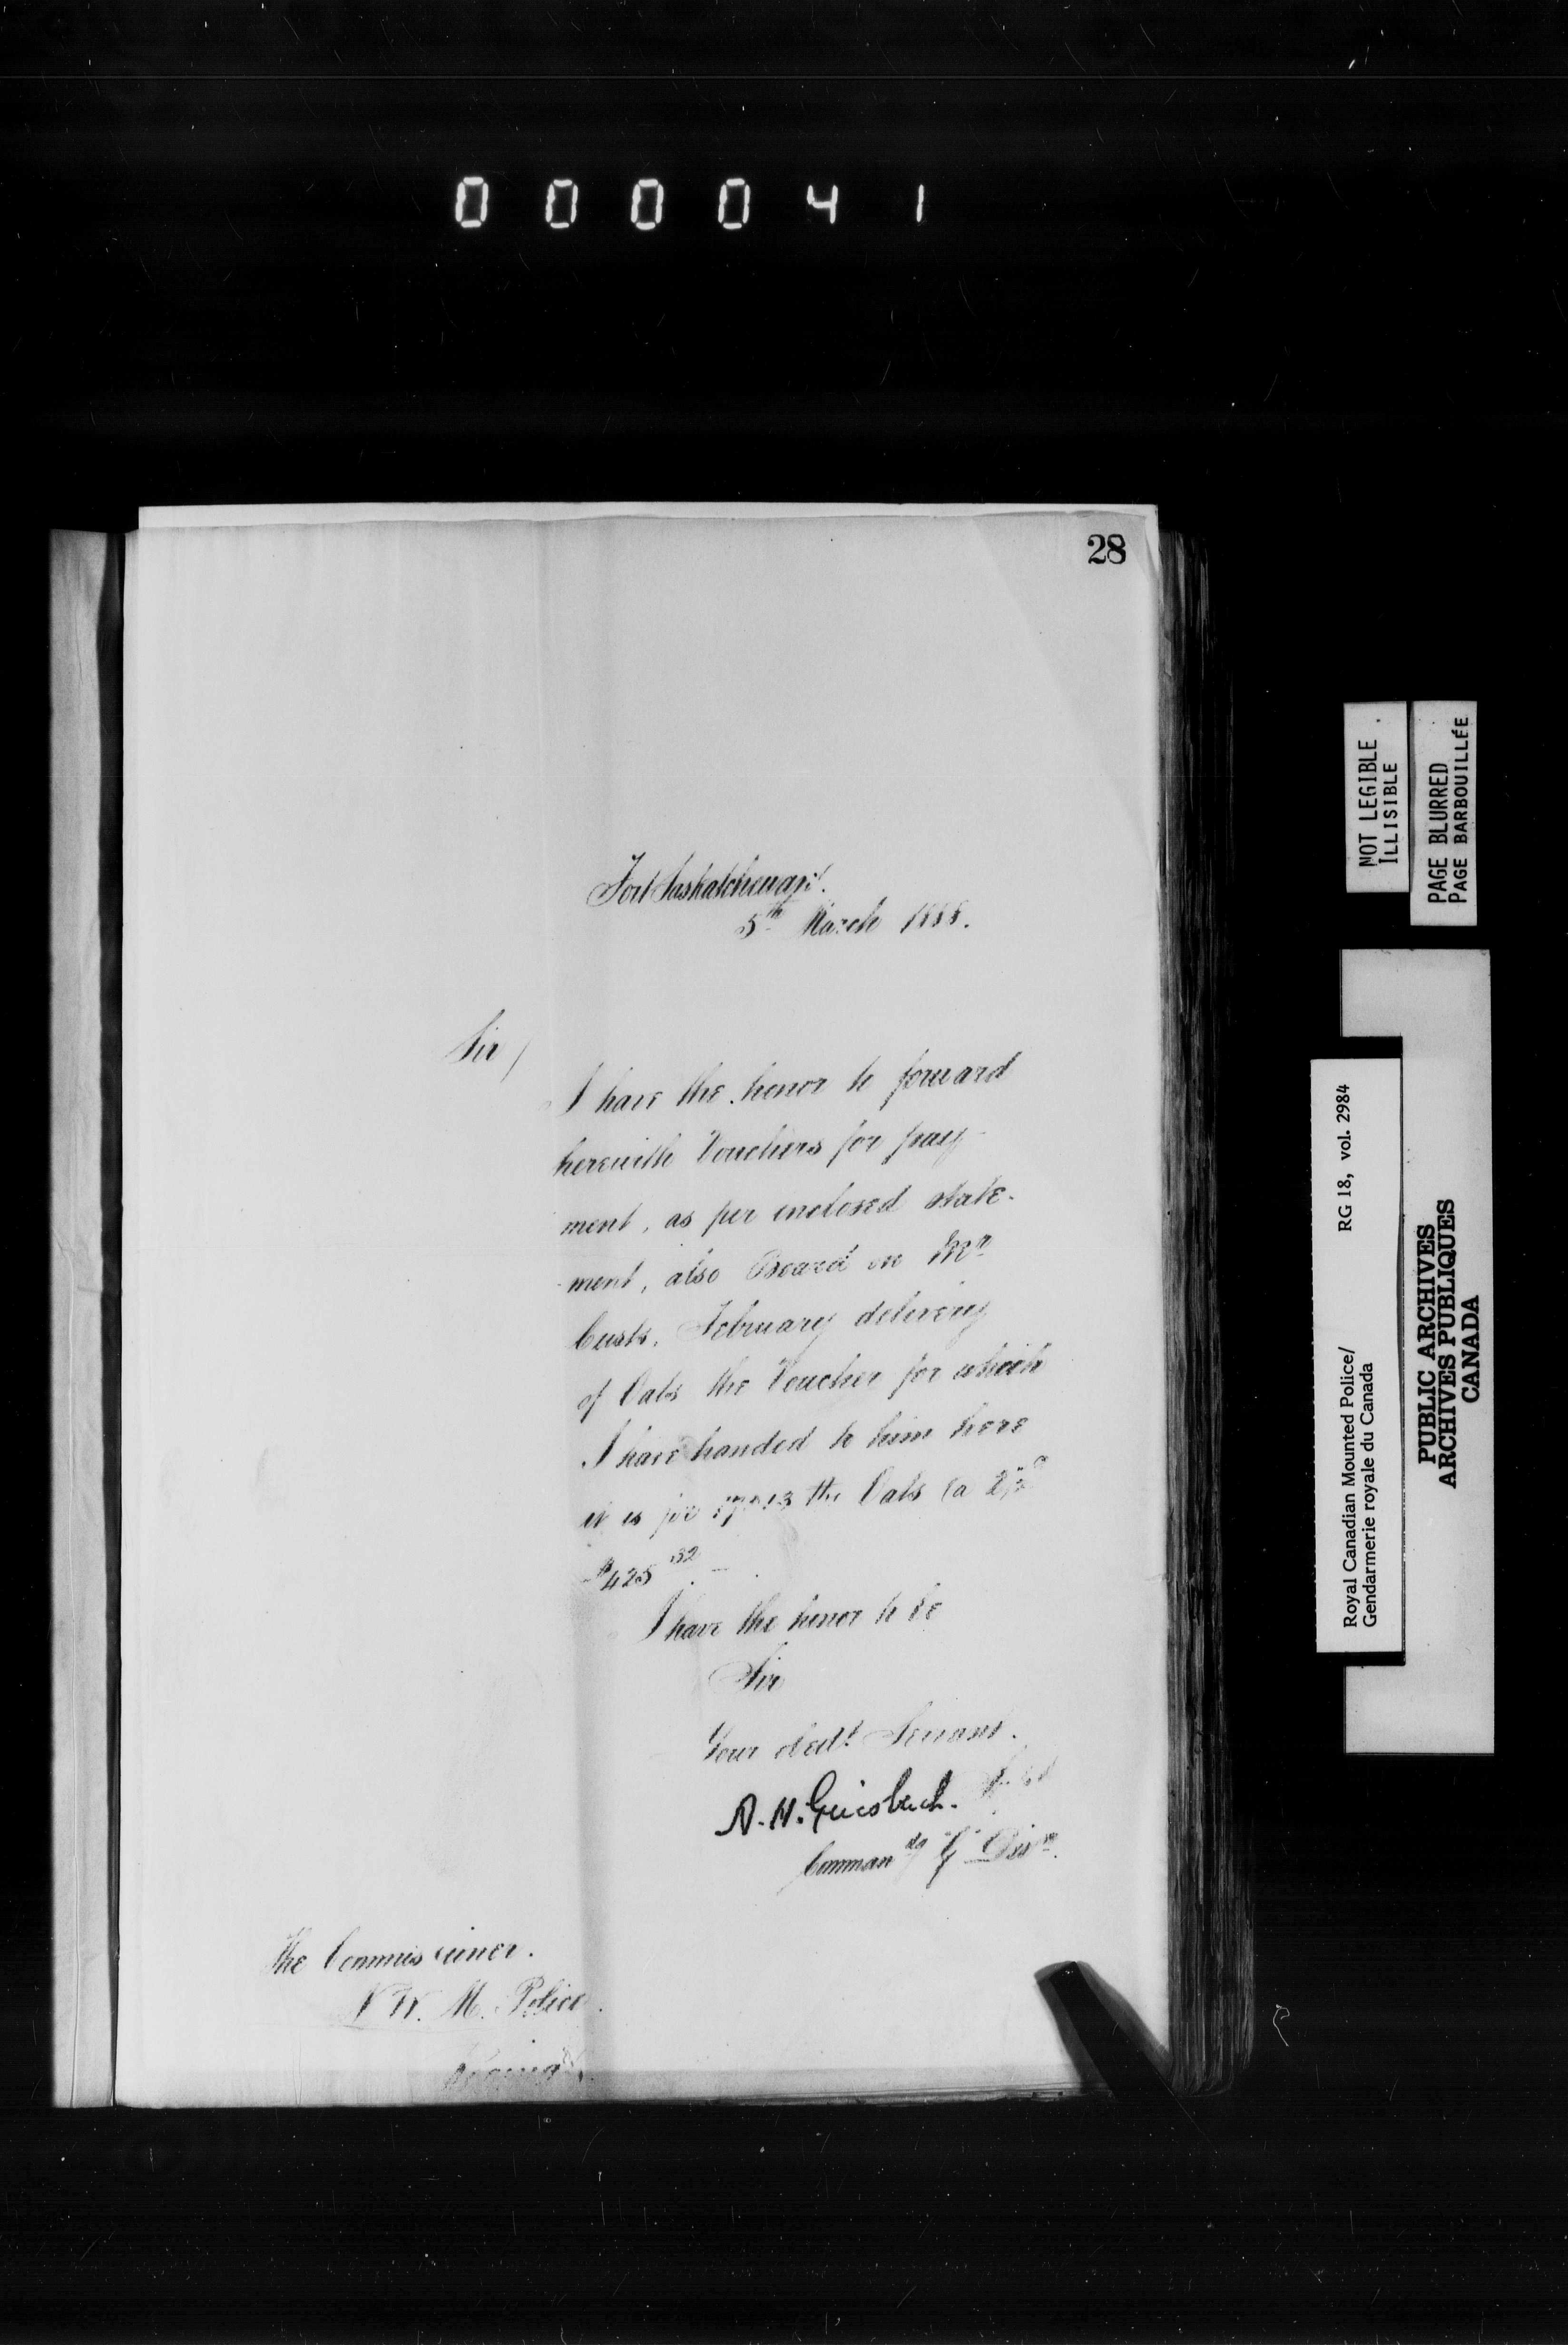 000041
28
Fort Saskatchewan.
5th March 1888.
Sir /
I have the honor to forward
herewith Vouchers for pay-
ment, as per enclosed state-
-ment, also Board on Mr
Cust's February delivery
of Oats the Voucher for which
I have handed to him here
it is for lbs Oats @ 2½c
$425.32 -
I have the honor to be
Sir
Your obedt Servant.
A. H. Griesbach. Supt
Commandg "G" Divn.
The Commissioner.
N. W. M. Police.
Regina
NOT LEGIBLE
ILLISIBLE
PAGE BLURRED
PAGE BARBOUILLÉE
Royal Canadian Mounted Police/ RG 18, vol. 2984
Gendarmerie royale du Canada
PUBLIC ARCHIVES
ARCHIVES PUBLIQUES
CANADA